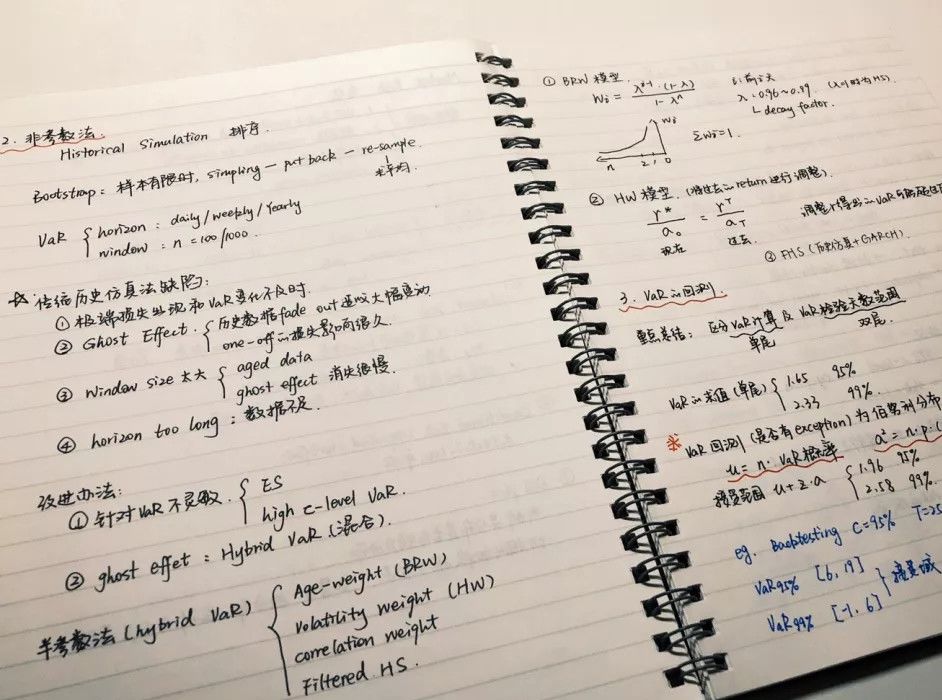 2. 非参数法.
Historical Simulation 排序.
Bootstrap: 样本有限时, simpling — put back — re-sample.
求平均.
VaR { horizon: daily/weekly/Yearly
window: n=100/1000.
☆ 传统历史仿真法缺陷:
① 极端损失出现和VaR变化不及时.
② Ghost Effect. { 历史数据fade out造成大幅变动
one-off的损失影响很久.
③ Window size 太大 { aged data
ghost effect 消失很慢.
④ horizon too long: 数据不足.
改进办法:
① 针对VaR不灵敏. { ES
high c-level VaR.
② ghost effet: Hybrid VaR (混合).
半参数法 (hybrid VaR) { Age-weight (BRW)
volatility weight (HW)
correlation weight
Filtered HS.
① BRW 模型.
Wi = λ^(i-1)·(1-λ) / (1-λ^n)
i: 前i天
λ: 0.96~0.99. (λ=1时为HS).
decay factor.
Wi
n 2 1 0
ΣWi=1.
② HW 模型. (将过去的return进行调整).
r*/a₀ = r^T/a_T
现在 过去.
③ FHS (历史仿真+GARCH).
3. VaR的回测.
重点总结: 区分VaR计算 及 VaR检验天数范围
单尾 双尾.
VaR的求值 (单尾) { 1.65 95%
2.33 99%.
※ VaR回测 (是否有exception) 为伯努利分布
u = n· VaR概率 a² = n·p·(
接受范围 u+z·a { 1.96 95%
2.58 99%.
eg. Backtesting C=95% T=25
VaR95% [6, 19] } 接受域
VaR99% [-1, 6]